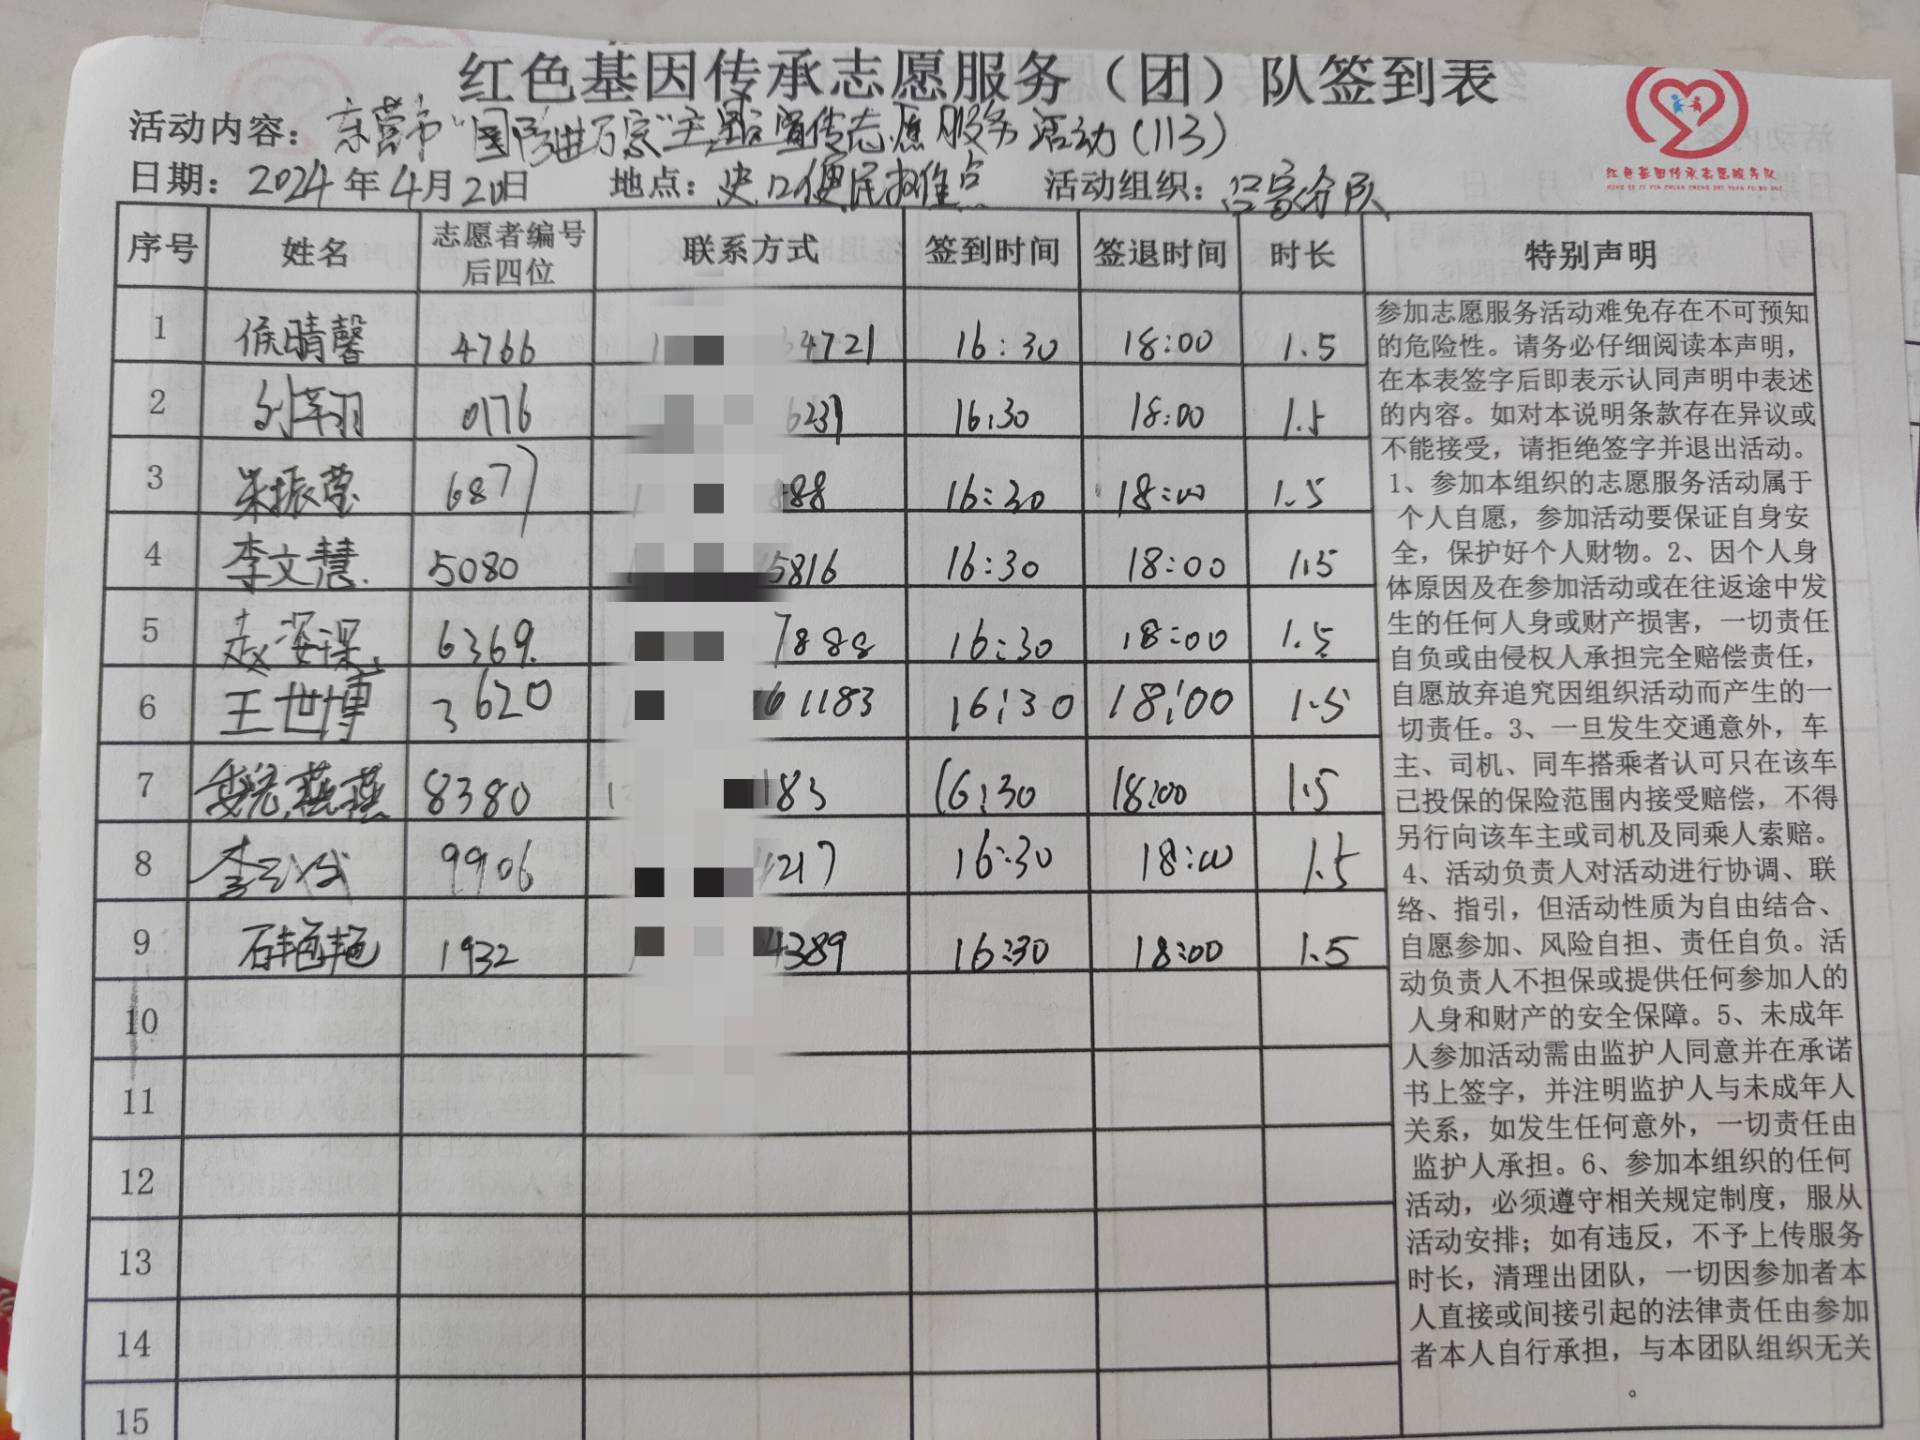 红色基因传承志愿服务（团）队签到表
活动内容：东营市“国防进万家”主题宣传志愿服务活动(113)
日期：2024年4月20日 地点：史口便民 点 活动组织：吕家分队
红色基因传承志愿服务队
序号 姓名 志愿者编号后四位 联系方式 签到时间 签退时间 时长 特别声明
1 侯晴馨 4766 4721 16:30 18:00 1.5
2 0176 6231 16:30 18:00 1.5
3 朱振莹 6877 888 16:30 18:00 1.5
4 李文慧 5080 5816 16:30 18:00 1.5
5 赵 6369 7888 16:30 18:00 1.5
6 王世博 3620 61183 16:30 18:00 1.5
7 魏燕燕 8380 183 16:30 18:00 1.5
8 李 9906 1217 16:30 18:00 1.5
9 石艳艳 1932 4389 16:30 18:00 1.5
10
11
12
13
14
15
参加志愿服务活动难免存在不可预知
的危险性。请务必仔细阅读本声明，
在本表签字后即表示认同声明中表述
的内容。如对本说明条款存在异议或
不能接受，请拒绝签字并退出活动。
1、参加本组织的志愿服务活动属于
个人自愿，参加活动要保证自身安
全，保护好个人财物。2、因个人身
体原因及在参加活动或在往返途中发
生的任何人身或财产损害，一切责任
自负或由侵权人承担完全赔偿责任，
自愿放弃追究因组织活动而产生的一
切责任。3、一旦发生交通意外，车
主、司机、同车搭乘者认可只在该车
已投保的保险范围内接受赔偿，不得
另行向该车主或司机及同乘人索赔。
4、活动负责人对活动进行协调、联
络、指引，但活动性质为自由结合、
自愿参加、风险自担、责任自负。活
动负责人不担保或提供任何参加人的
人身和财产的安全保障。5、未成年
人参加活动需由监护人同意并在承诺
书上签字，并注明监护人与未成年人
关系，如发生任何意外，一切责任由
监护人承担。6、参加本组织的任何
活动，必须遵守相关规定制度，服从
活动安排；如有违反，不予上传服务
时长，清理出团队，一切因参加者本
人直接或间接引起的法律责任由参加
者本人自行承担，与本团队组织无关
。